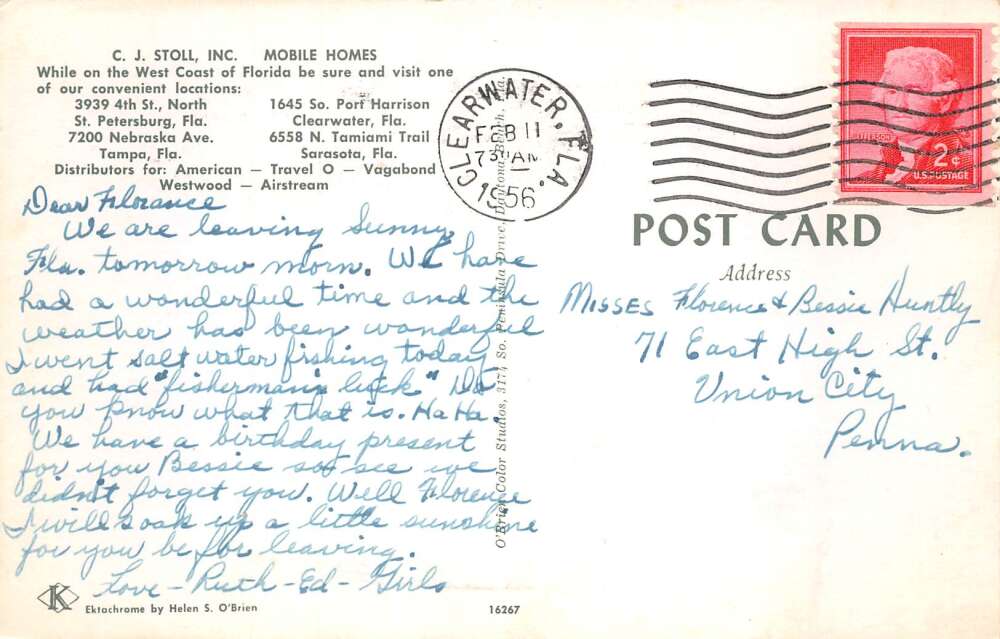 C. J. STOLL, INC. MOBILE HOMES
While on the West Coast of Florida be sure and visit one
of our convenient locations:
3939 4th St., North 1645 So. Port Harrison
St. Petersburg, Fla. Clearwater, Fla.
7200 Nebraska Ave. 6558 N. Tamiami Trail
Tampa, Fla. Sarasota, Fla.
Distributors for: American — Travel O — Vagabond
Westwood — Airstream
Dear Florance
We are leaving Sunny
Fla. tomorrow morn. We have
had a wonderful time and the
weather has been wonderful
I went salt water fishing today
and had "fisherman's luck" Do
you know what that is. Ha Ha.
We have a birthday present
for you Bessie so see we
didn't forget you. Well Florence
I will soak up a little sunshine
for you be for leaving.
Love - Ruth - Ed - Girls
K
Ektachrome by Helen S. O'Brien
16267
O'Brien Color Studios, 3174 So. Peninsula Drive, Daytona Beach, Fla.
CLEARWATER, FLA.
FEB 11
730 AM
1956
JEFFERSON
2¢
U.S. POSTAGE
POST CARD
Address
Misses Florence & Bessie Huntly
71 East High St.
Union City
Penna.